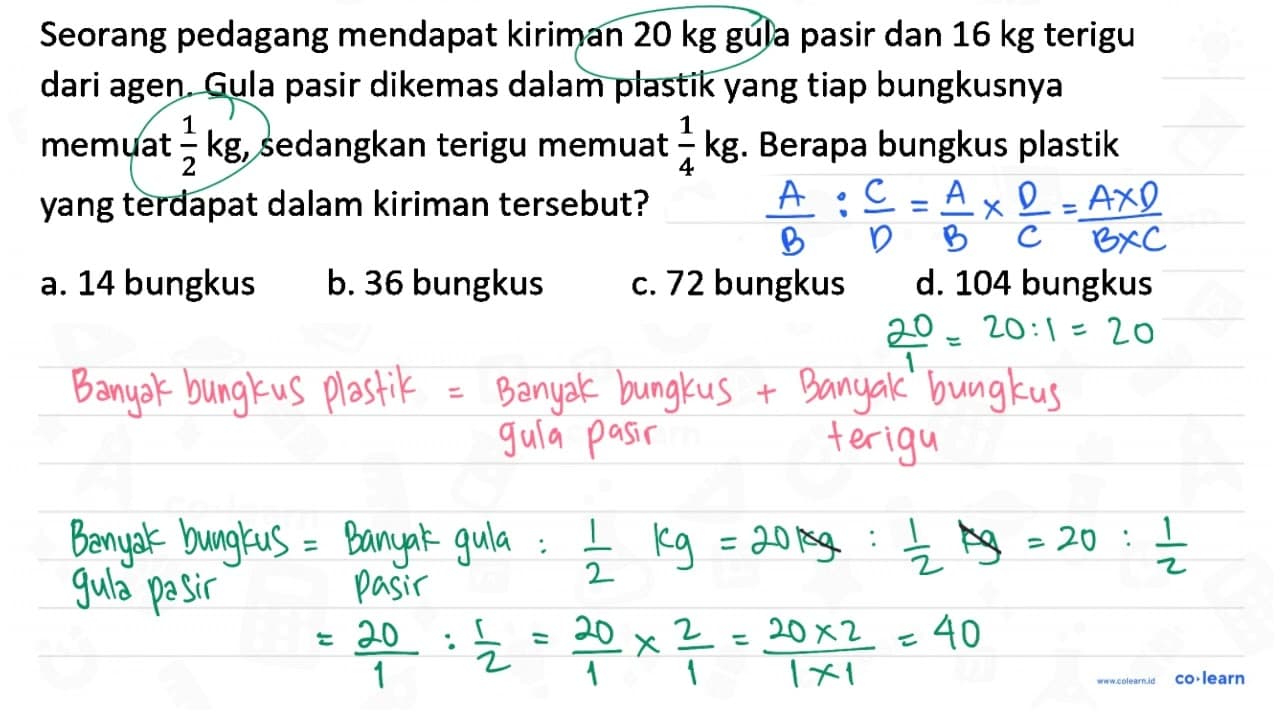 Seorang pedagang mendapat kiriman 20 kg gula pasir dan 16 kg terigu
dari agen. Gula pasir dikemas dalam plastik yang tiap bungkusnya
memuat 1/2 kg, sedangkan terigu memuat 1/4 kg. Berapa bungkus plastik
yang terdapat dalam kiriman tersebut?
A/B : C/D = A/B x D/C = AxD/BxC
a. 14 bungkus b. 36 bungkus c. 72 bungkus d. 104 bungkus
20/1 = 20:1 = 20
Banyak bungkus plastik = Banyak bungkus + Banyak bungkus
gula pasir terigu
Banyak bungkus = Banyak gula : 1/2 kg = 20 kg : 1/2 kg = 20 : 1/2
gula pasir pasir
= 20/1 : 1/2 = 20/1 x 2/1 = 20x2/1x1 = 40
www.colearn.id co·learn